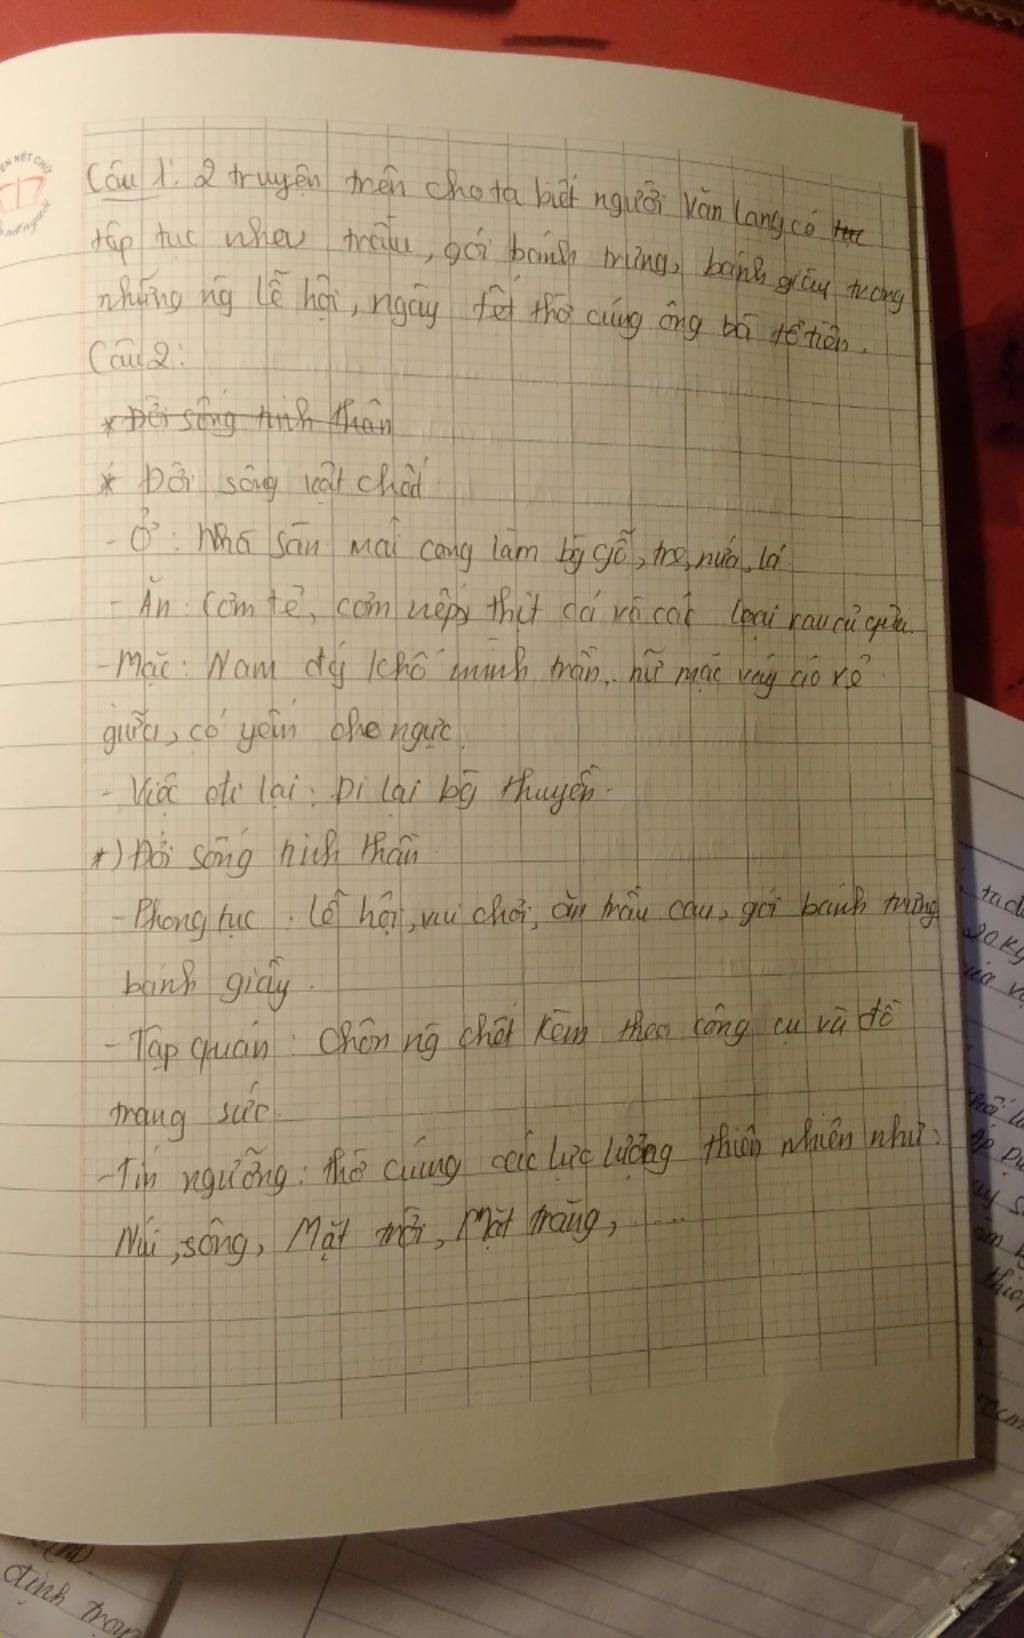 EN NÉT CHỮ
Câu 1: 2 truyện trên cho ta biết người Văn Lang có
tập tục nhau trầu, gói bánh trưng, bánh giầy trong
những ng lễ hội, ngày tết thờ cúng ông bà tổ tiên.
Câu 2:
* Đời sống tinh thần
* Đời sống vật chất
- Ở: Nhà sàn mái cong làm bg gỗ, tre, nứa, lá.
- Ăn: Cơm tẻ, cơm nếp, thịt cá và các loại rau củ quả.
- Mặc: Nam đóng khố mình trần, nữ mặc váy áo xẻ
giữa, có yếm che ngực.
- Việc đi lại: Đi lại bg thuyền.
*) Đời sống tinh thần
- Phong tục: Lễ hội, vui chơi, ăn trầu cau, gói bánh trưng
bánh giầy.
- Tập quán: Chôn ng chết kèm theo công cụ và đồ
trang sức.
- Tín ngưỡng: thờ cúng các lực lượng thiên nhiên như:
Núi, sông, Mặt trời, Mặt trăng, .....
20 kg
định